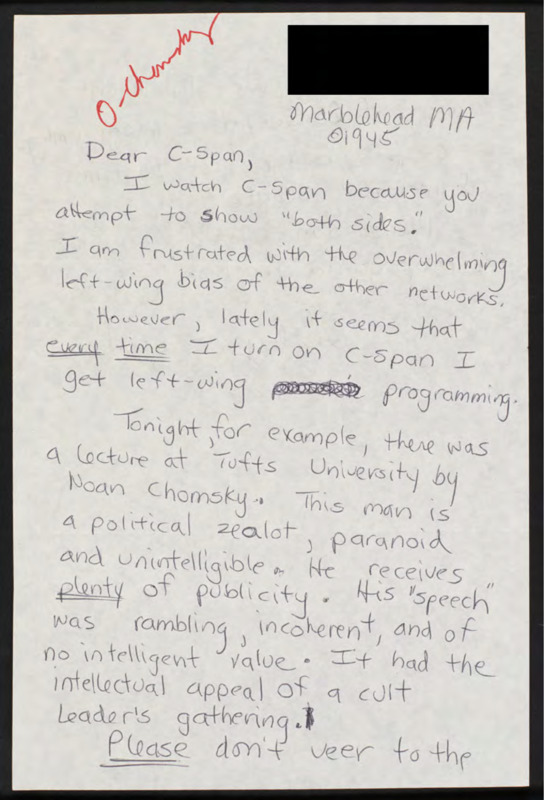 O-Chomsky
Marblehead MA
01945
Dear C-Span,
I watch C-Span because you
attempt to show "both sides."
I am frustrated with the overwhelming
left-wing bias of the other networks.
However, lately it seems that
every time I turn on C-Span I
get left-wing programming.
Tonight, for example, there was
a lecture at Tufts University by
Noan Chomsky. This man is
a political zealot, paranoid
and unintelligible. He receives
plenty of publicity. His "speech"
was rambling, incoherent, and of
no intelligent value. It had the
intellectual appeal of a cult
Leader's gathering.
Please don't veer to the